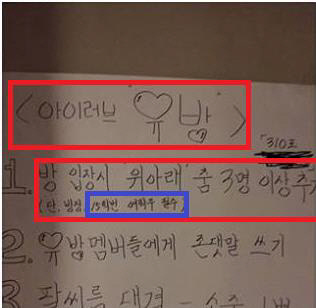 <아이러브 '♡유방'>
310호
1. 방 입장시 '위아래' 춤 3명 이상 추
(단, 방장, 15학번 여학우 필수)
2. ♡방 멤버들에게 존댓말 쓰기